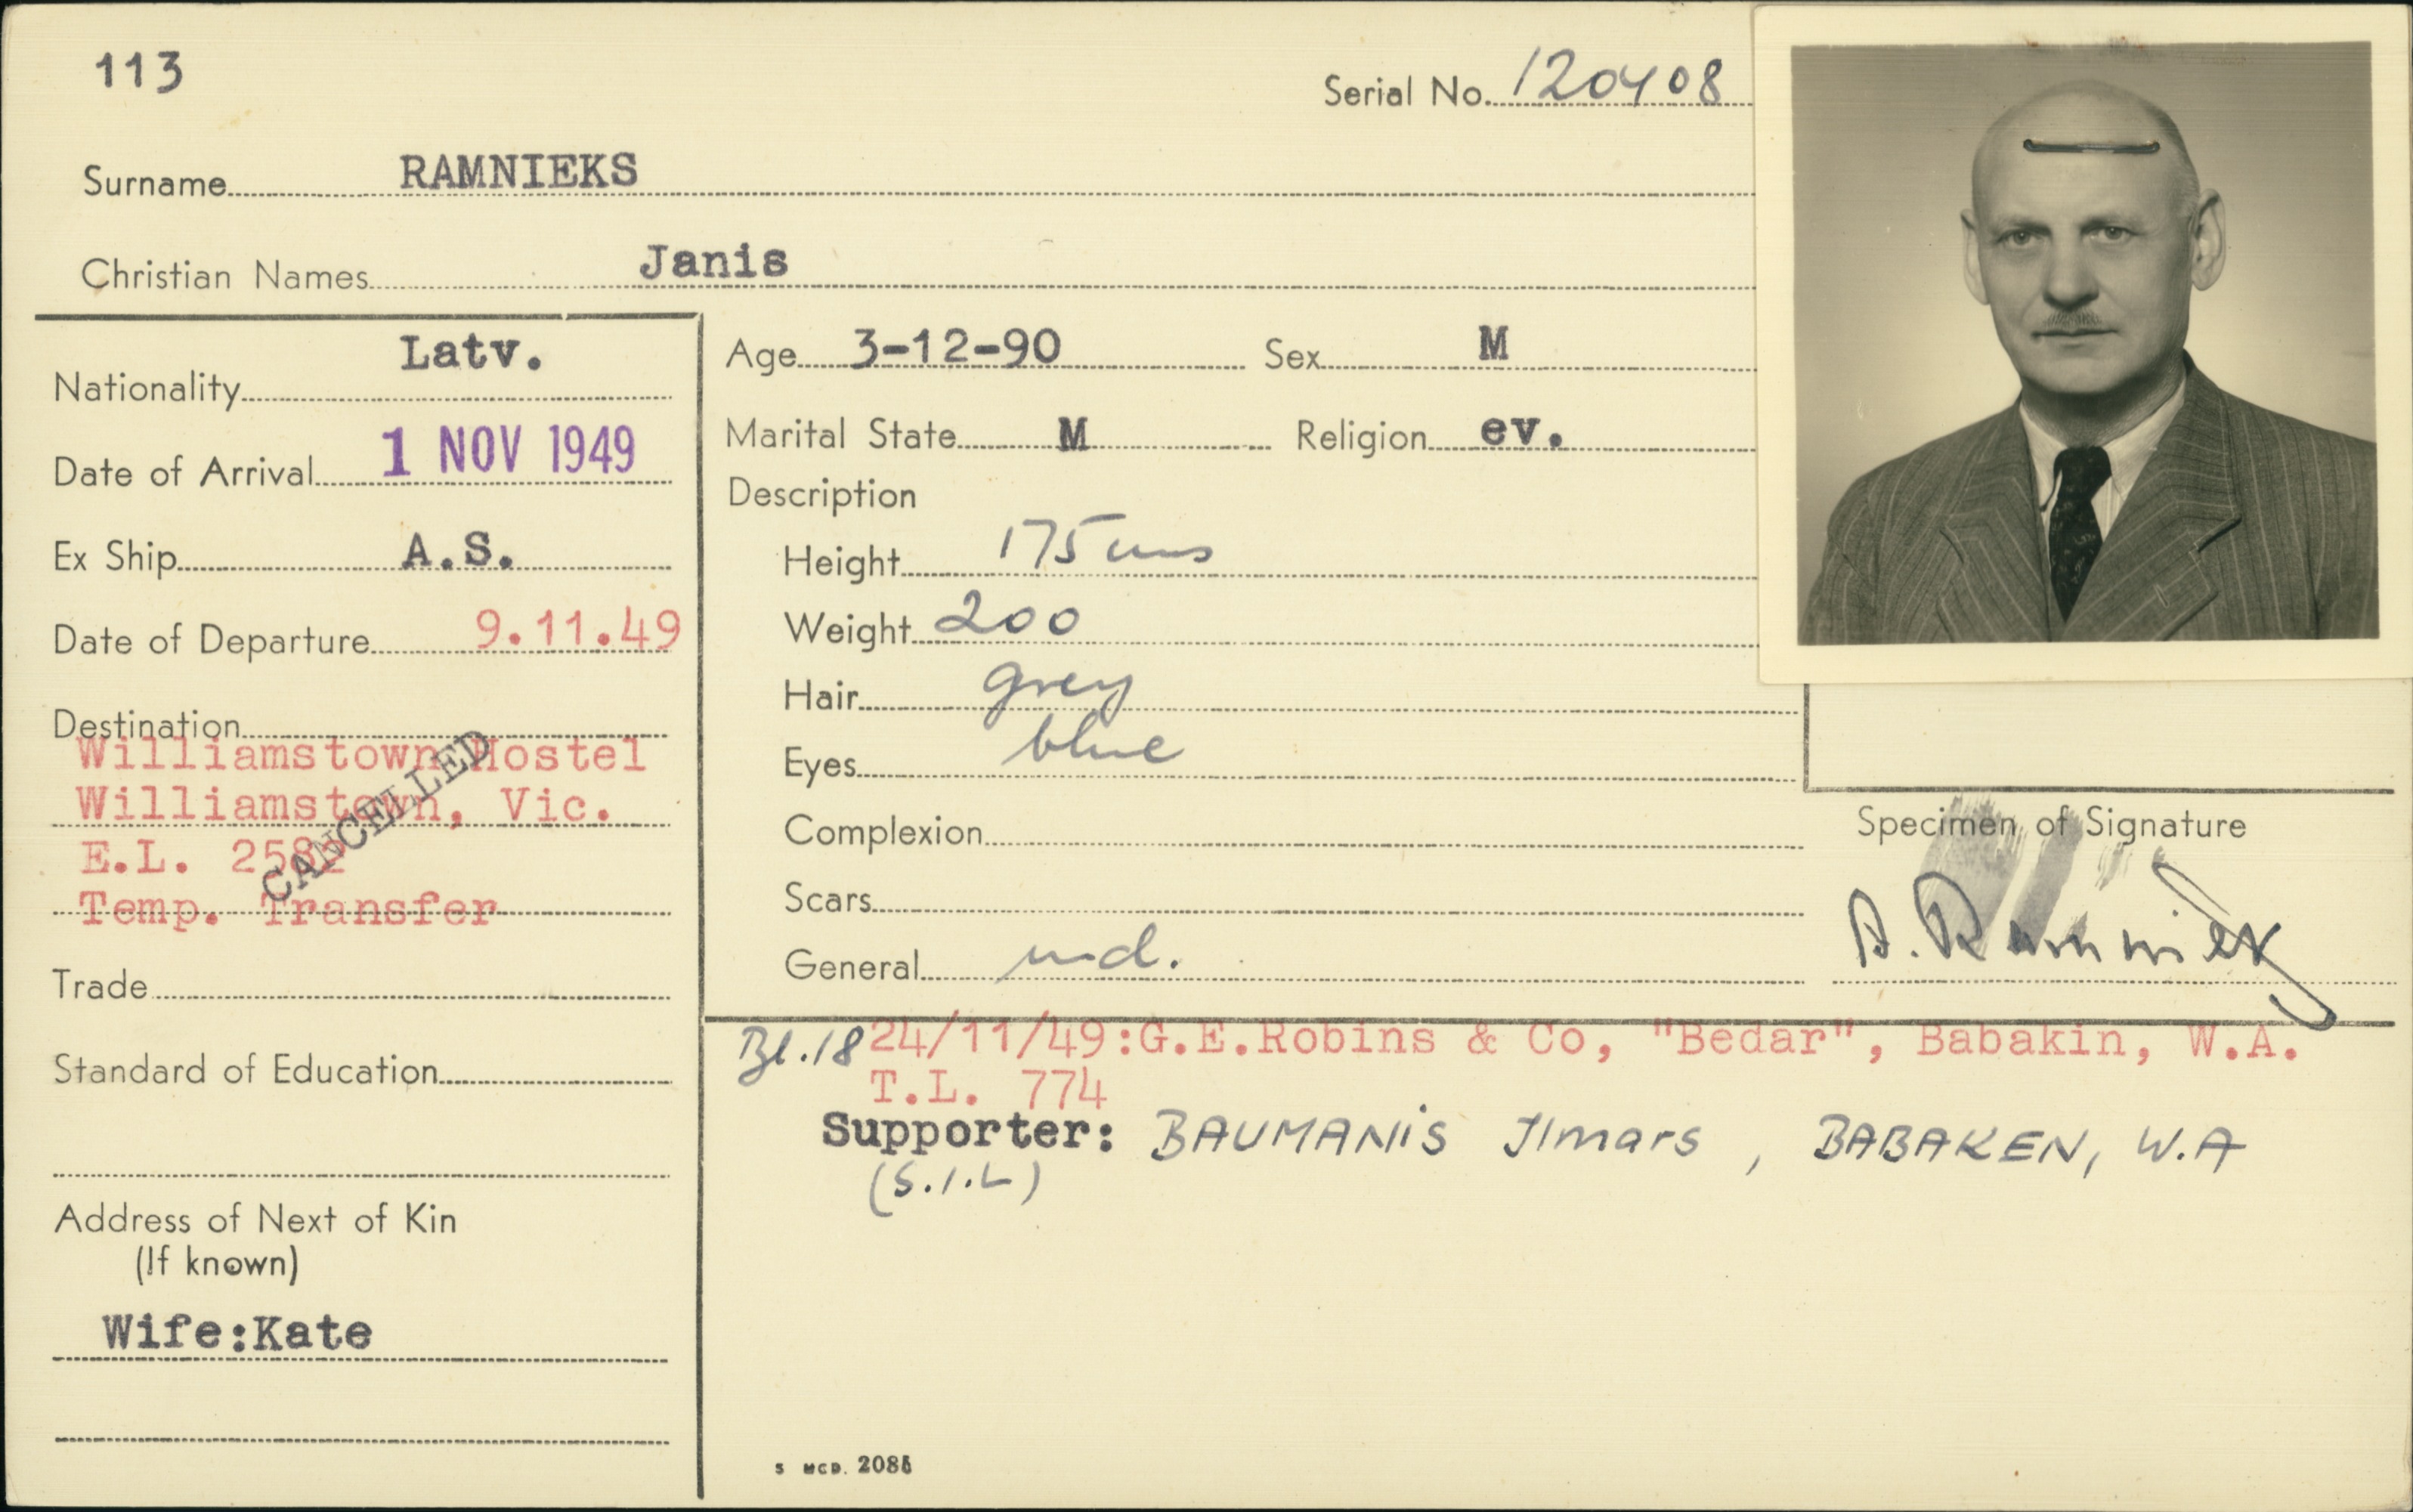 113
Serial No. 120408
Surname RAMNIEKS
Christian Names Janis
Nationality Latv.
Date of Arrival 1 NOV 1949
Ex Ship A.S.
Date of Departure 9.11.49
Destination
Williamstown Hostel
Williamstown, Vic.
E.L. 2582
Temp. Transfer
CANCELLED
Trade
Standard of Education
Address of Next of Kin
(If known)
Wife:Kate
Age 3-12-90 Sex M
Marital State M Religion ev.
Description
Height 175 cms
Weight 200
Hair grey
Eyes blue
Complexion
Scars
General
Specimen of Signature
Bl.18 24/11/49:G.E.Robins & Co, "Bedar", Babakin, W.A.
T.L. 774
Supporter: BAUMANIS Ilmars , BABAKEN, W.A
(S.I.L)